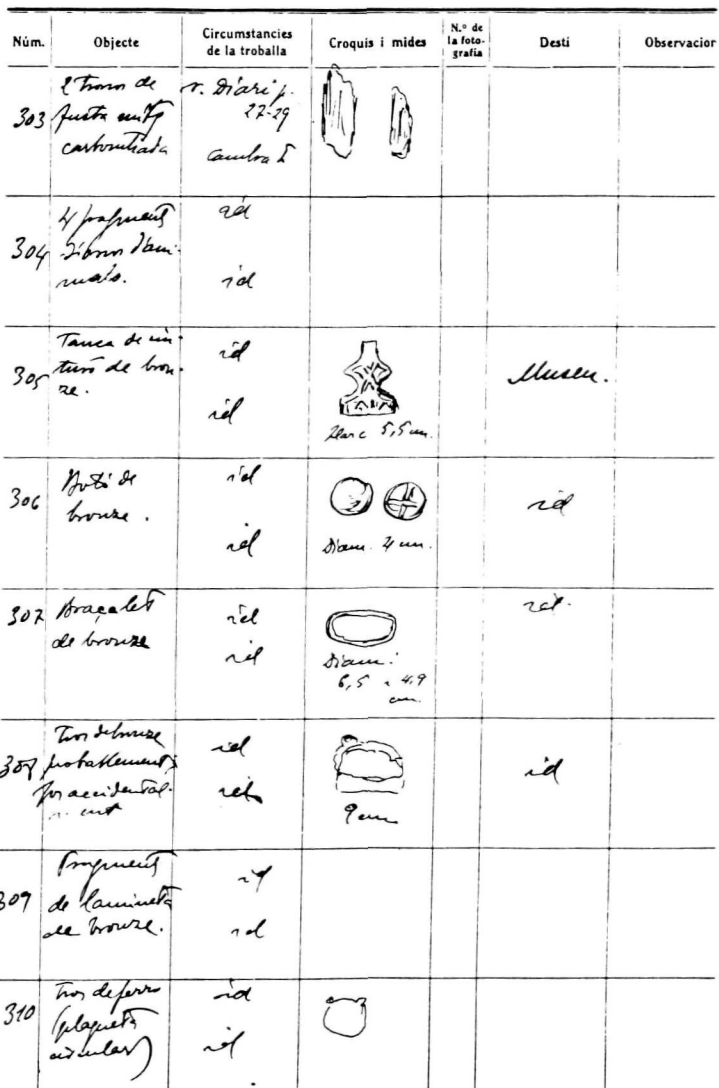 Núm.
Objecte
Circumstancies
de la troballa
Croquis i mides
N.º de
la foto-
grafia
Desti
Observacior
303
2 trossos de
fusta mitg
carbonitzada
v. Diari p.
27-29
Cambra I
304
4 fragments
d'ani-
mals.
id
id
305
Tanca de cin-
turó de bron-
ze.
id
id
Llarc 5,5 cm.
Museu.
306
Botó de
bronze.
id
id
Diam. 4 cm.
id
307
Braçalet
de bronze
id
id
Diam:
6,5 x 4,9
cm.
id.
308
Tros de bronze
probablement
fos accidental-
ment
id
id
9 cm
id
309
Fragment
de lamineta
de bronze.
id
id
310
Tros de ferro
(plaqueta
circular)
id
id